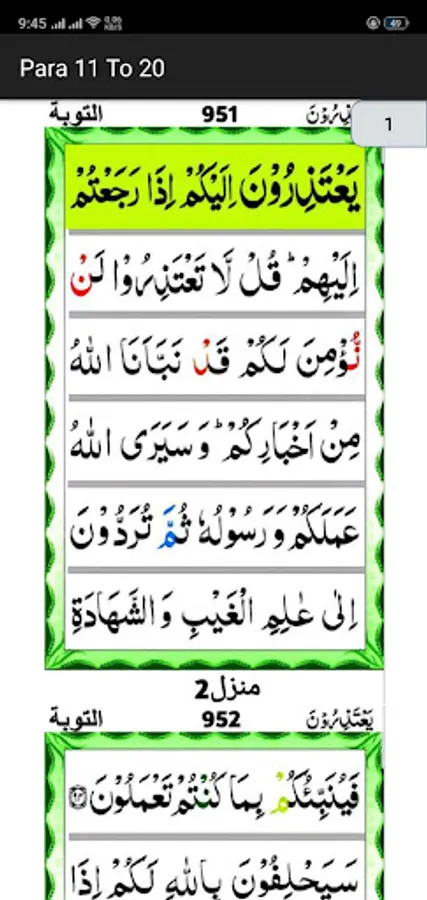 9:45 0.06 KB/S 49
Para 11 To 20
التوبة 951 یَعْتَذِرُوْنَ
1
یَعْتَذِرُوْنَ اِلَیْكُمْ اِذَا رَجَعْتُمْ
اِلَیْهِمْ ؕ قُلْ لَّا تَعْتَذِرُوْا لَنْ
نُّؤْمِنَ لَكُمْ قَدْ نَبَّاَنَا اللّٰهُ
مِنْ اَخْبَارِكُمْ ؕ وَ سَیَرَی اللّٰهُ
عَمَلَكُمْ وَ رَسُوْلُهٗ ثُمَّ تُرَدُّوْنَ
اِلٰی عٰلِمِ الْغَیْبِ وَ الشَّهَادَةِ
منزل2
التوبة 952 یَعْتَذِرُوْنَ
فَیُنَبِّئُكُمْ بِمَا كُنْتُمْ تَعْمَلُوْنَ ۝۹۴
سَیَحْلِفُوْنَ بِاللّٰهِ لَكُمْ اِذَا